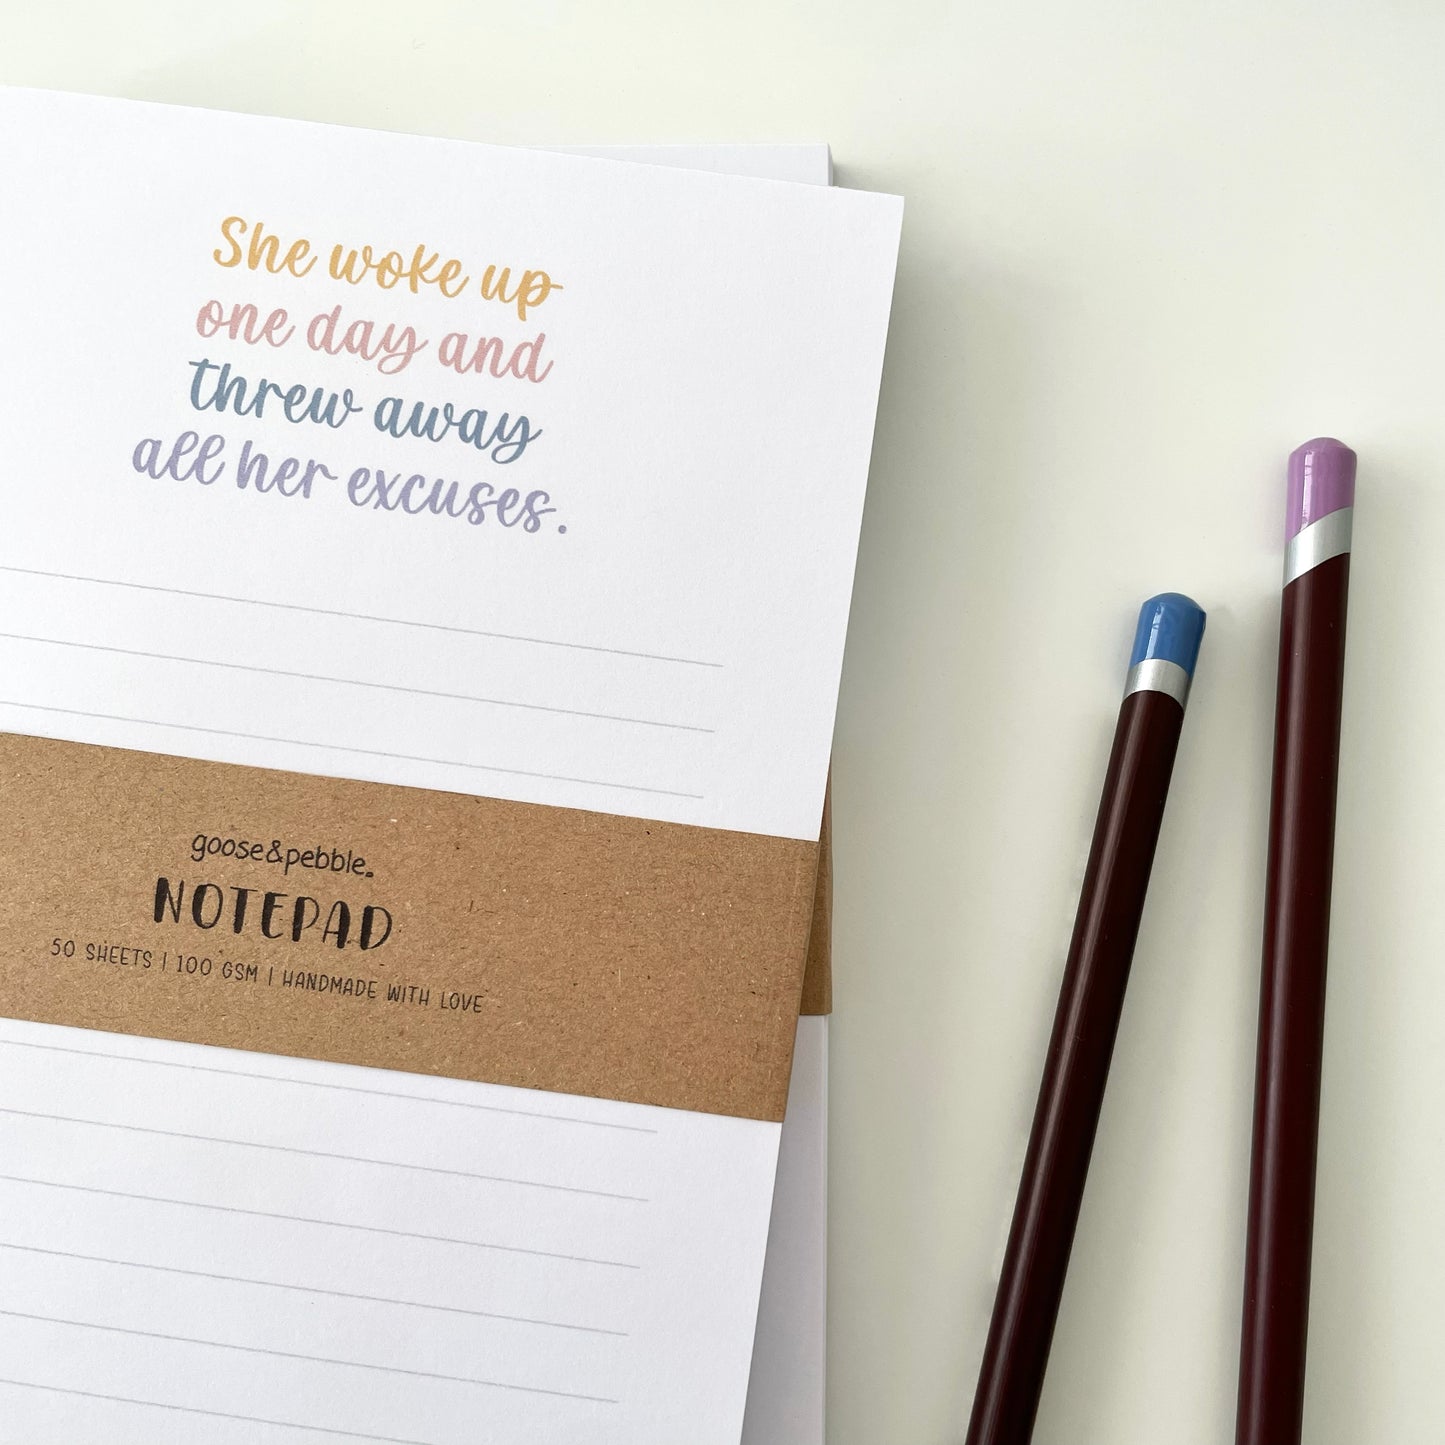 She woke up
one day and
threw away
all her excuses.
goose&pebble.
NOTEPAD
50 SHEETS | 100 GSM | HANDMADE WITH LOVE